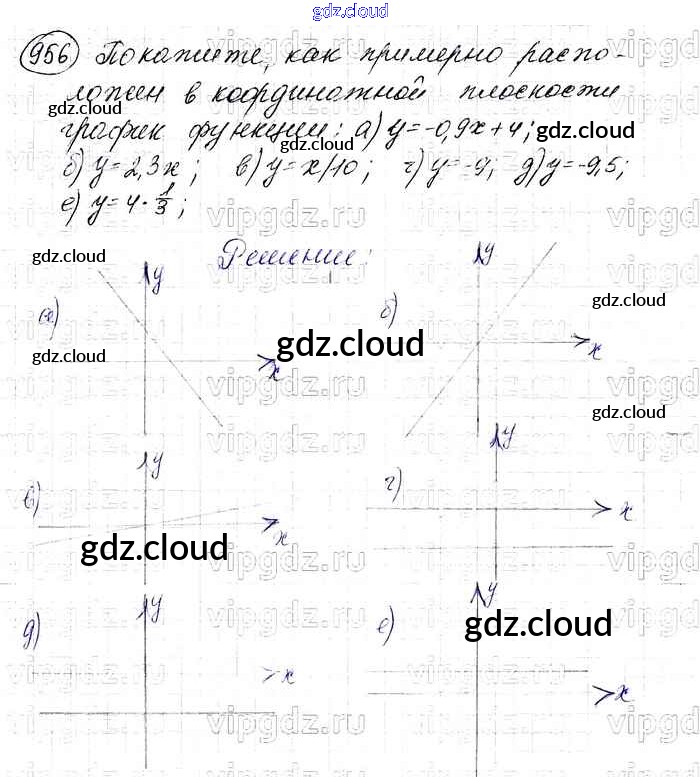 gdz.cloud
956 Покажите, как примерно распо-
ложен в координатной плоскости
график функции: а) y=-0,9x+4;
б) y=2,3x; в) y=x/10; г) y=-9; д) y=-9,5;
е) y=4·1/3;
Решение:
а) y x
б) y x
в) y x
г) y x
д) y x
е) y x
gdz.cloud
gdz.cloud
gdz.cloud
gdz.cloud
gdz.cloud
gdz.cloud
gdz.cloud
gdz.cloud
gdz.cloud
gdz.cloud
vipgdz.ru